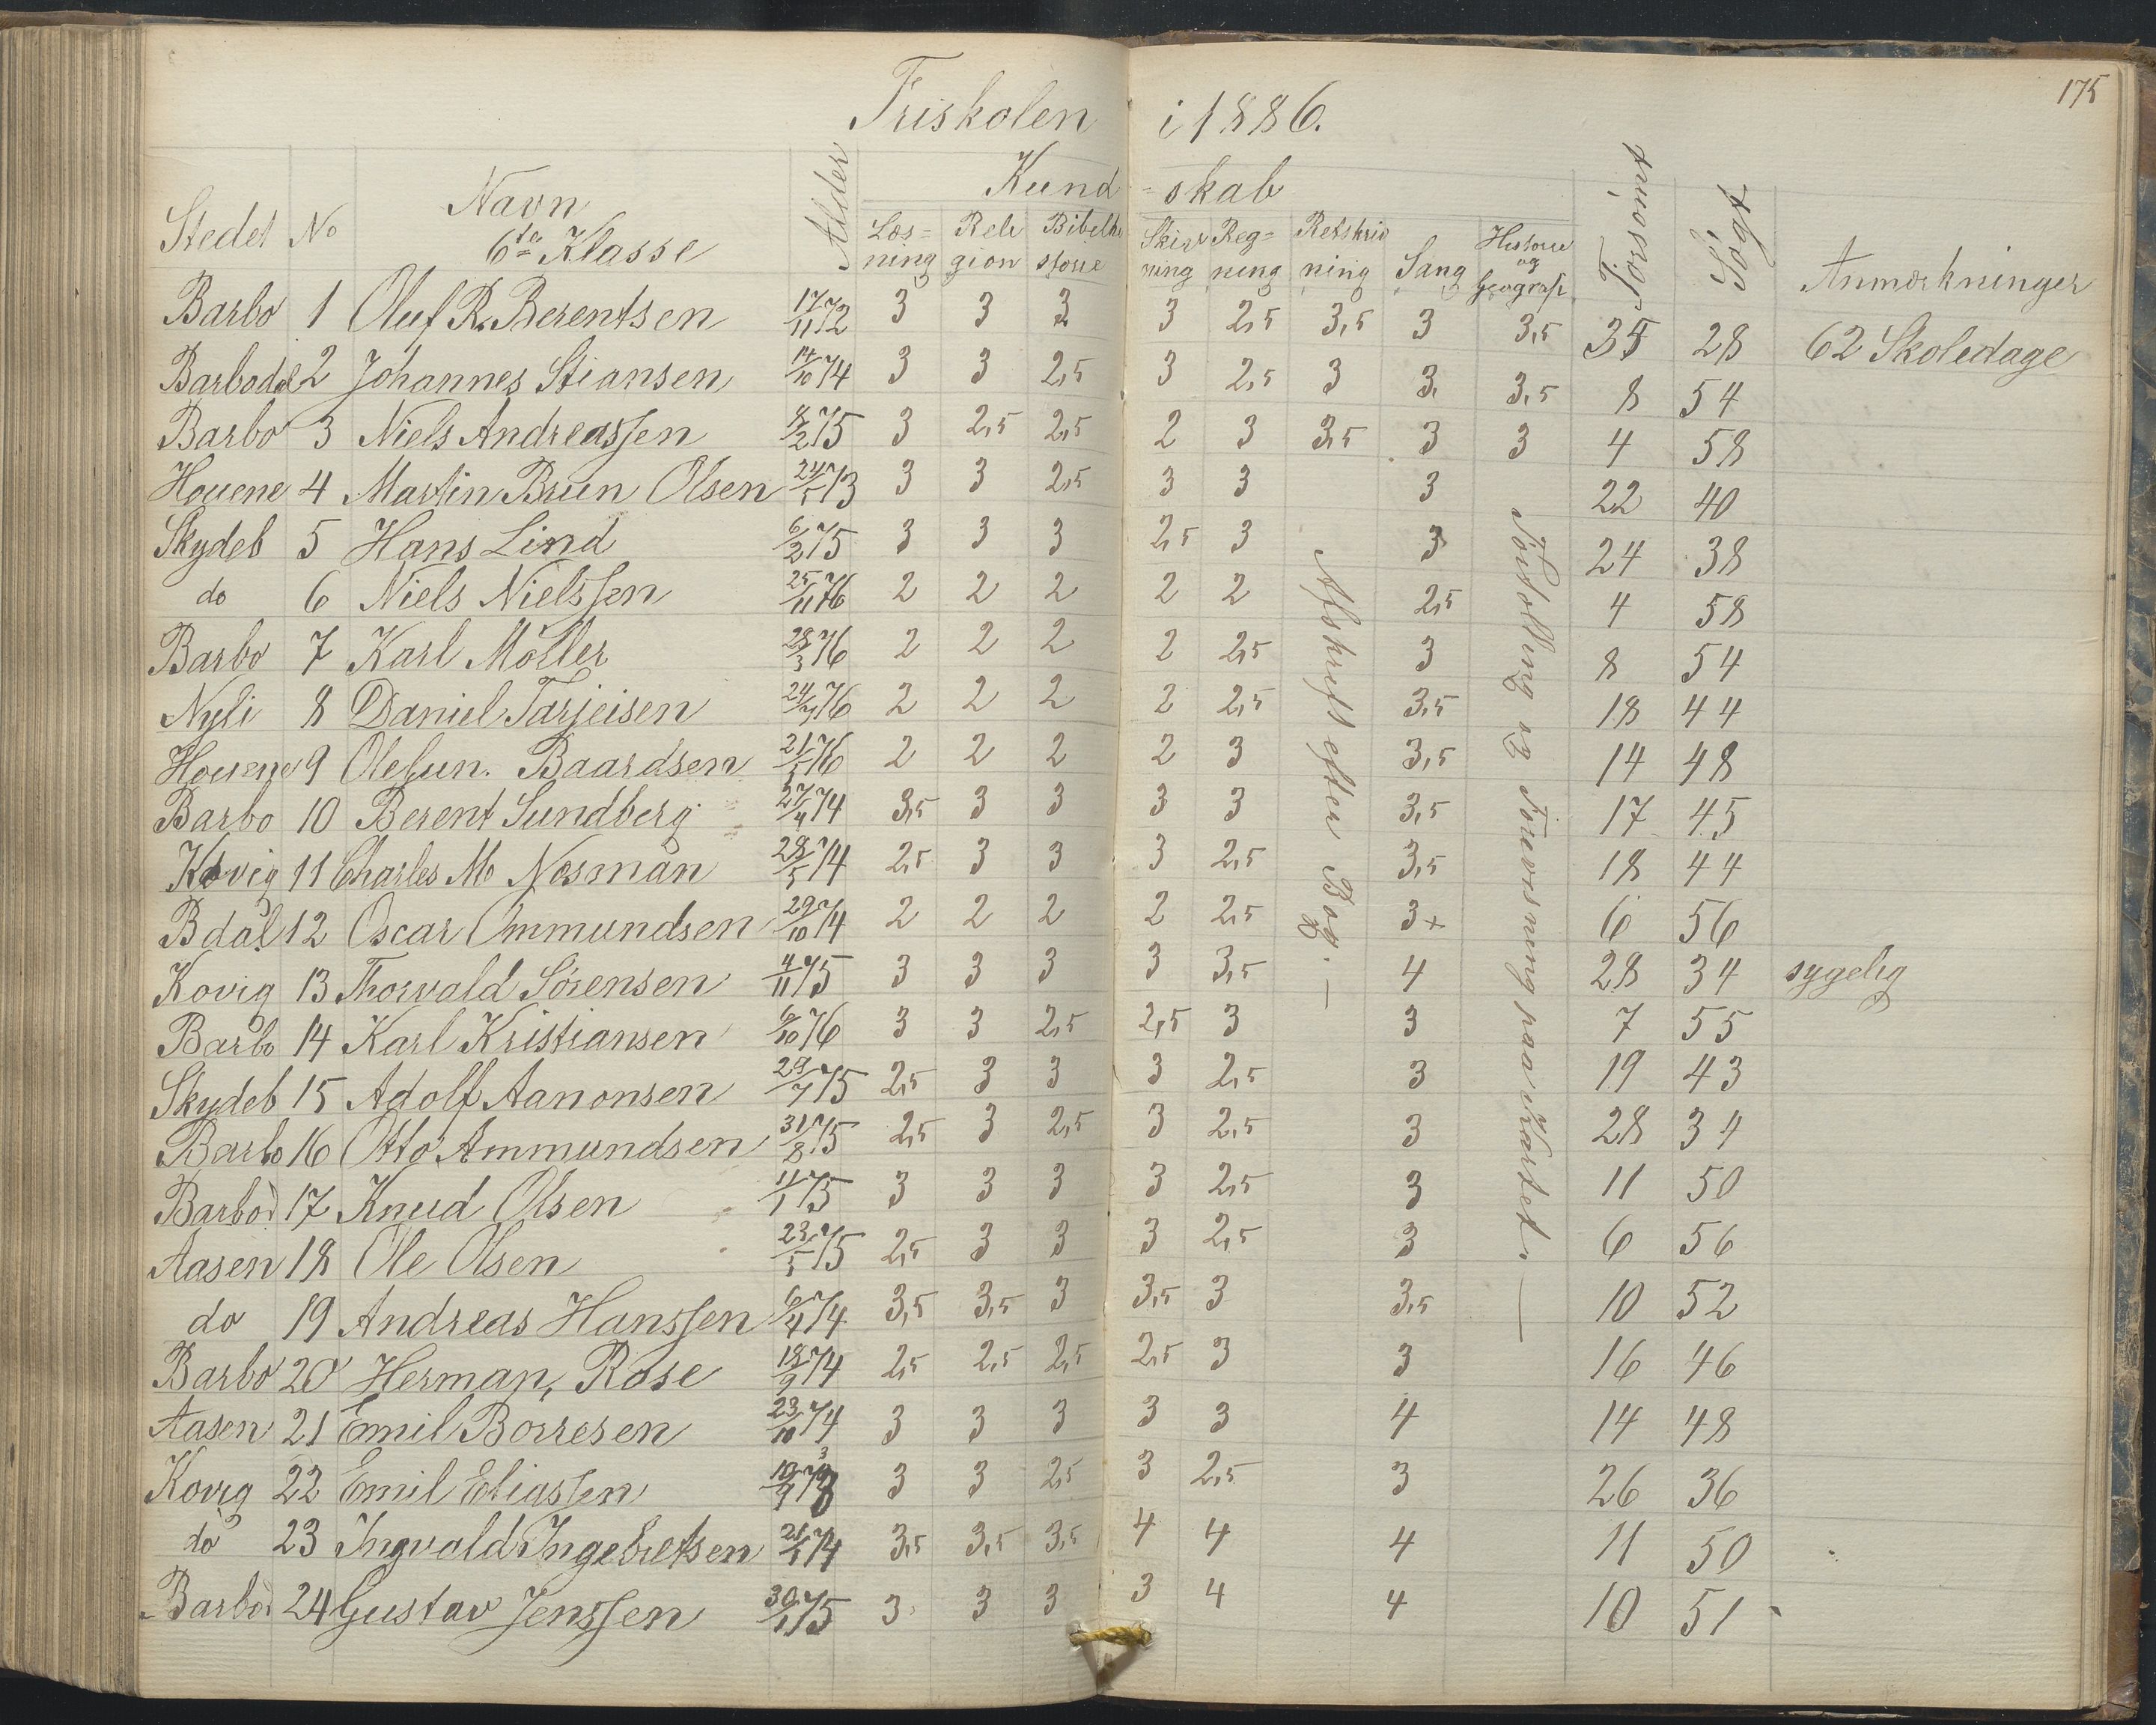 175
Friskolen i 1886.
Kund=skab
Stedet No Navn Alder Læs= Reli Bibelhi Skriv Reg= Retskriv Historie Forsömt Sögt
6te Klasse ning gion storie ning ning ning Sang og Geografi Anmærkninger
Barbo 1 Oluf R. Berentsen 17/11 72 3 3 3 3 2,5 3,5 3 3,5 35 28 62 Skoledage
Barbodal 2 Johannes Stiansen 14/10 74 3 3 2,5 3 2,5 3 3 3,5 8 54
Barbo 3 Niels Andreassen 8/2 75 3 2,5 2,5 2 3 3,5 3 3 4 58
Houene 4 Martin Brun Olsen 24/5 73 3 3 2,5 3 3 3 22 40
Skydeb 5 Hans Lind 6/2 75 3 3 3 2,5 3 3 24 38
do 6 Niels Nielssen 25/11 76 2 2 2 2 2 2,5 4 58
Barbo 7 Karl Möller 28/3 76 2 2 2 2 2,5 3 8 54
Nyli 8 Daniel Tarjeisen 24/7 76 2 2 2 2 2,5 3,5 18 44
Houene 9 Ole Gun. Baardsen 21/5 76 2 2 2 2 3 3,5 14 48
Barbo 10 Berent Sundberg 27/4 74 3,5 3 3 3 3 3,5 17 45
Kovig 11 Charles M. Nosman 28/5 74 2,5 3 3 3 2,5 3,5 18 44
Bdal 12 Oscar Ommundsen 29/10 74 2 2 2 2 2,5 3+ 6 56
Kovig 13 Thorvald Sörensen 4/11 75 3 3 3 3 3,5 4 28 34 sygelig
Barbo 14 Karl Kristiansen 6/10 76 3 3 2,5 2,5 3 3 7 55
Skydeb 15 Adolf Aanonsen 29/7 75 2,5 3 3 3 2,5 3 19 43
Barbo 16 Otto Ammundsen 31/8 75 2,5 3 2,5 3 2,5 3 28 34
Barbod 17 Knud Olsen 11/1 75 3 3 3 3 2,5 3 11 50
Aasen 18 Ole Olsen 23/5 75 2,5 3 3 3 2,5 3 6 56
do 19 Andreas Hanssen 6/4 74 3,5 3,5 3 3,5 3 3,5 10 52
Barbo 20 Herman Rose 18/9 74 2,5 2,5 2,5 2,5 3 3 16 46
Aasen 21 Emil Börresen 23/10 74 3 3 3 3 3 4 14 48
Kovig 22 Emil Eliassen 19/9 73 3 3 2,5 3 2,5 3 26 36
do 23 Ingvald Ingebretsen 21/5 74 3,5 3,5 3,5 4 4 4 11 50
Barbod 24 Gustav Jenssen 30/1 75 3 3 3 3 4 4 10 51
Afskrift efter Bog. —
Fortælling og Forevisning paa Kartet. —